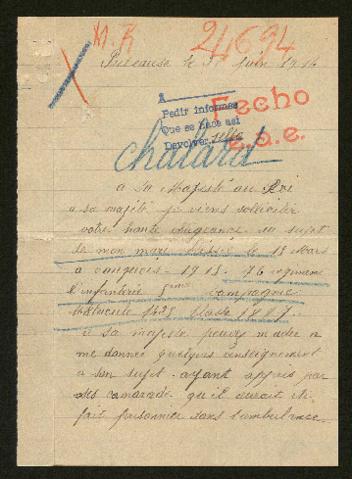 M. R 24694
le 3 Juin 1916
A
Pedir informes
Que se hace así
Devolver sello
Fecho
e.a.e.
Chalard
a Sa Majesté au Roi
a sa majesté je viens solliciter
votre haute au sujet
de mon mari blessé le 18 Mars
a 1915. 76 régiment
l'infanterie 5me Compagnie
Matricule Classe
a sa majesté
me donnée quelques renseignement
a son sujet ayant appris par
ses camarade qu'il aurait ete
fait prisonnier dans l'ambulance.